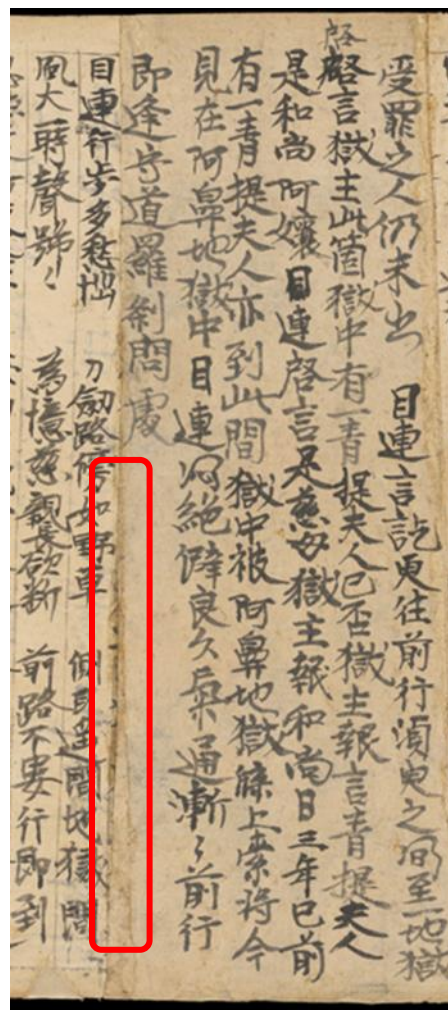 受罪之人仍未出 目連言訖更往前行須臾之間至一地獄
啓
啓言獄主此箇獄中有一青提夫人已否獄主報言青提夫人
是和尚阿孃目連啓言是慈母獄主報和尚曰三年已前
有一青提夫人亦到此間獄中被阿鼻地獄牒上索將今
見在阿鼻地獄中目連悶絶僻良久氣通漸〻前行
即逢守道羅刹問處
目連行步多愁惱 刀劒路傍如野草 側耳遥聞地獄間
風大一時聲號〻 為憶慈親長欲斷 前路不婁行即到